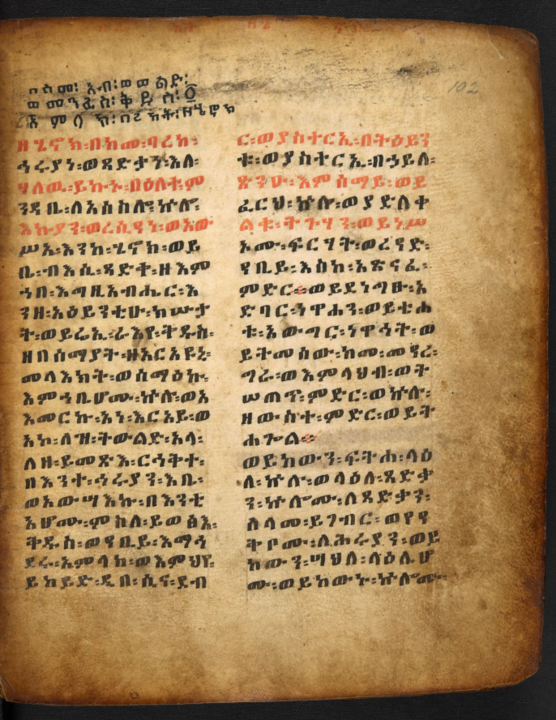 በስመ፡ አብ፡ ወወልድ፡
ወመንፈስ፡ ቅዱስ፡ ፩
አምላክ፡ በረከት፡ ዘሄኖክ
102
ዘሄኖክ፡በከመ፡ባረከ፡
ኅሩያነ፡ወጻድቃን፡እለ፡
ሃለዉ፡ይኩኑ፡በዕለተ፡ም
ንዳቤ፡ለአሰስሎ፡ኵሎ፡
እኩያን፡ወረሲዓን፡ወአው
ሥአ፡እንከ፡ሄኖክ፡ወይ
ቤ፡ብእሲ፡ጻድቅ፡ዘእም
ኀበ፡እግዚአብሔር፡እ
ንዘ፡አዕይንቲሁ፡ክሡታ
ት፡ወይሬኢ፡ራእየ፡ቅዱስ፡
ዘበሰማያት፡ዘአርአዩኒ፡
መላእክት፡ወሰማዕኩ፡
እምኀቤሆሙ፡ኵሎ፡ወአ
እመርኩ፡አነ፡እርአይ፡ወ
አኮ፡ለዝ፡ትውልድ፡አላ፡
ለዘ፡ይመጽእ፡ርኅቅት፡
በእንተ፡ኅሩያን፡እቤ፡
ወአውሣእኩ፡በእንቲ
አሆሙ፡ምስለ፡ይወፅእ፡
ቅዱስ፡ወዓቢይ፡እማኅ
ደሩ፡አምላክ፡ወእምህየ፡
ይከይድ፡ዲበ፡ሲና፡ደብ
ር፡ወያስተርኢ፡በትዕይን
ቱ፡ወያስተርኢ፡በኃይለ፡
ጽንዑ፡እምሰማይ፡ወይ
ፈርህ፡ኵሉ፡ወያድለቀ
ልቁ፡ትጉሃን፡ወይነሥ
ኦሙ፡ፍርሃት፡ወረዓድ፡
ዓቢይ፡እስከ፡አጽናፈ፡
ምድር፡ወይደነግፁ፡አ
ድባር፡ነዋኀን፡ወይቴሐ
ቱ፡አውግር፡ነዋኅት፡ወ
ይትመሰው፡ከመ፡መዓረ፡
ግራ፡ወእምላህብ፡ወት
ሠጠጥ፡ምድር፡ወኵሉ፡
ዘውስተ፡ምድር፡ወይት
ሐጐል፡
ወይከውን፡ፍትሐ፡ላዕ
ለ፡ኵሉ፡ወላዕለ፡ጻድቃ
ን፡ኵሎሙ፡ለጻድቃን፡
ሰላመ፡ይገብር፡ወየዓ
ቅቦሙ፡ለኅሩያን፡ወይ
ከውን፡ሣህለ፡ላዕሌሆ
ሙ፡ወይከውኑ፡ኵሎሙ፡